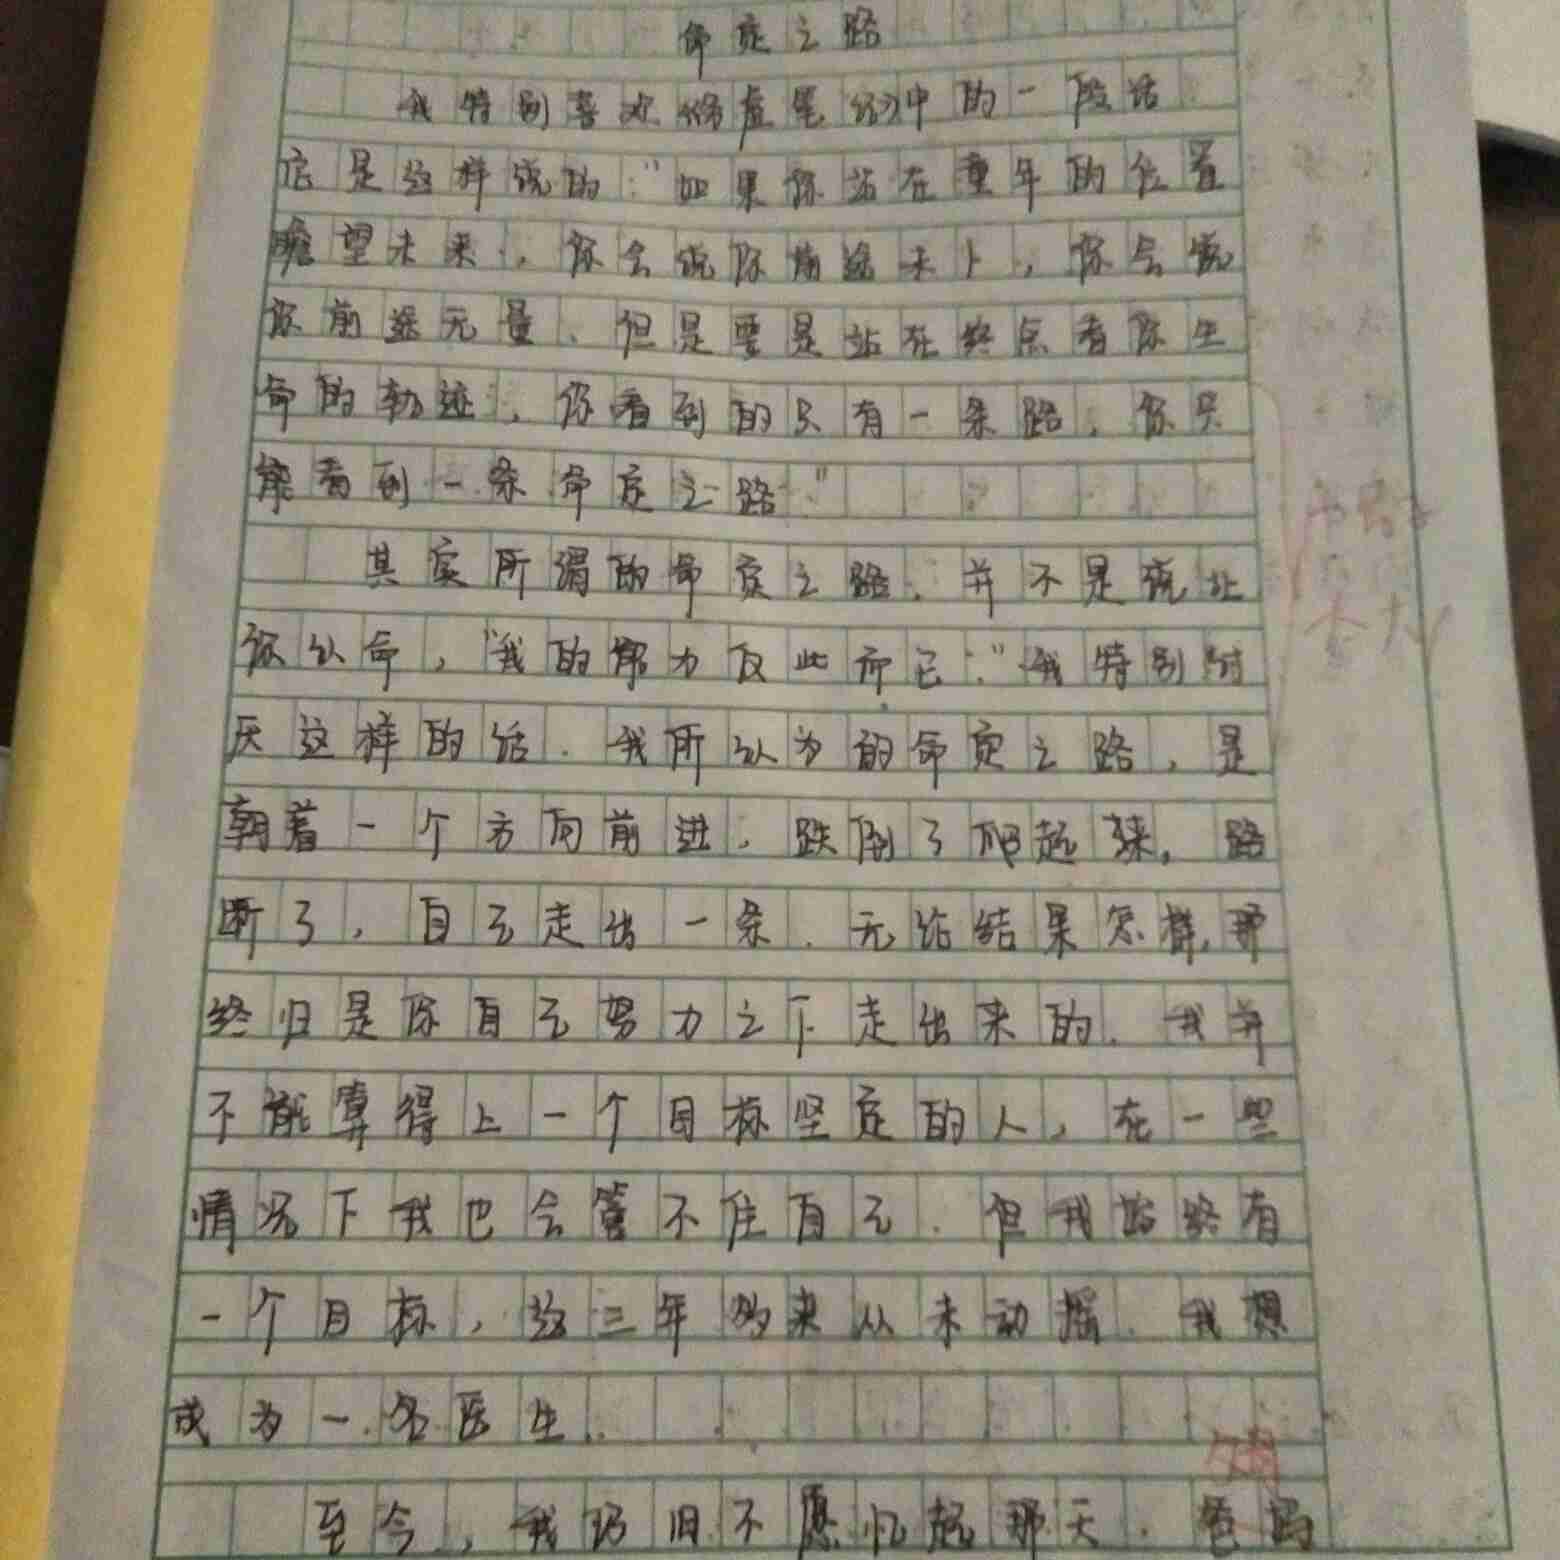 命定之路
我特别喜欢《修虚笔记》中的一段话
它是这样说的:"如果你站在童年的位置
瞻望未来,你会说你前途未卜,你会说
你前途无量、但是要是站在终点看你生
命的轨迹,你看到的只有一条路,你只
能看到一条命定之路."
其实所谓的命定之路,并不是说让
你认命,"我的能力仅此而已."我特别讨
厌这样的话.我所认为的命定之路,是
朝着一个方向前进,跌倒了爬起来,路
断了,自己走出一条.无论结果怎样,那
终归是你自己努力之下走出来的.我并
不能算得上一个目标坚定的人,在一些
情况下我也会管不住自己.但我始终有
一个目标,这三年多来从未动摇.我想
成为一名医生.
至今,我仍旧不愿忆起那天.爸妈